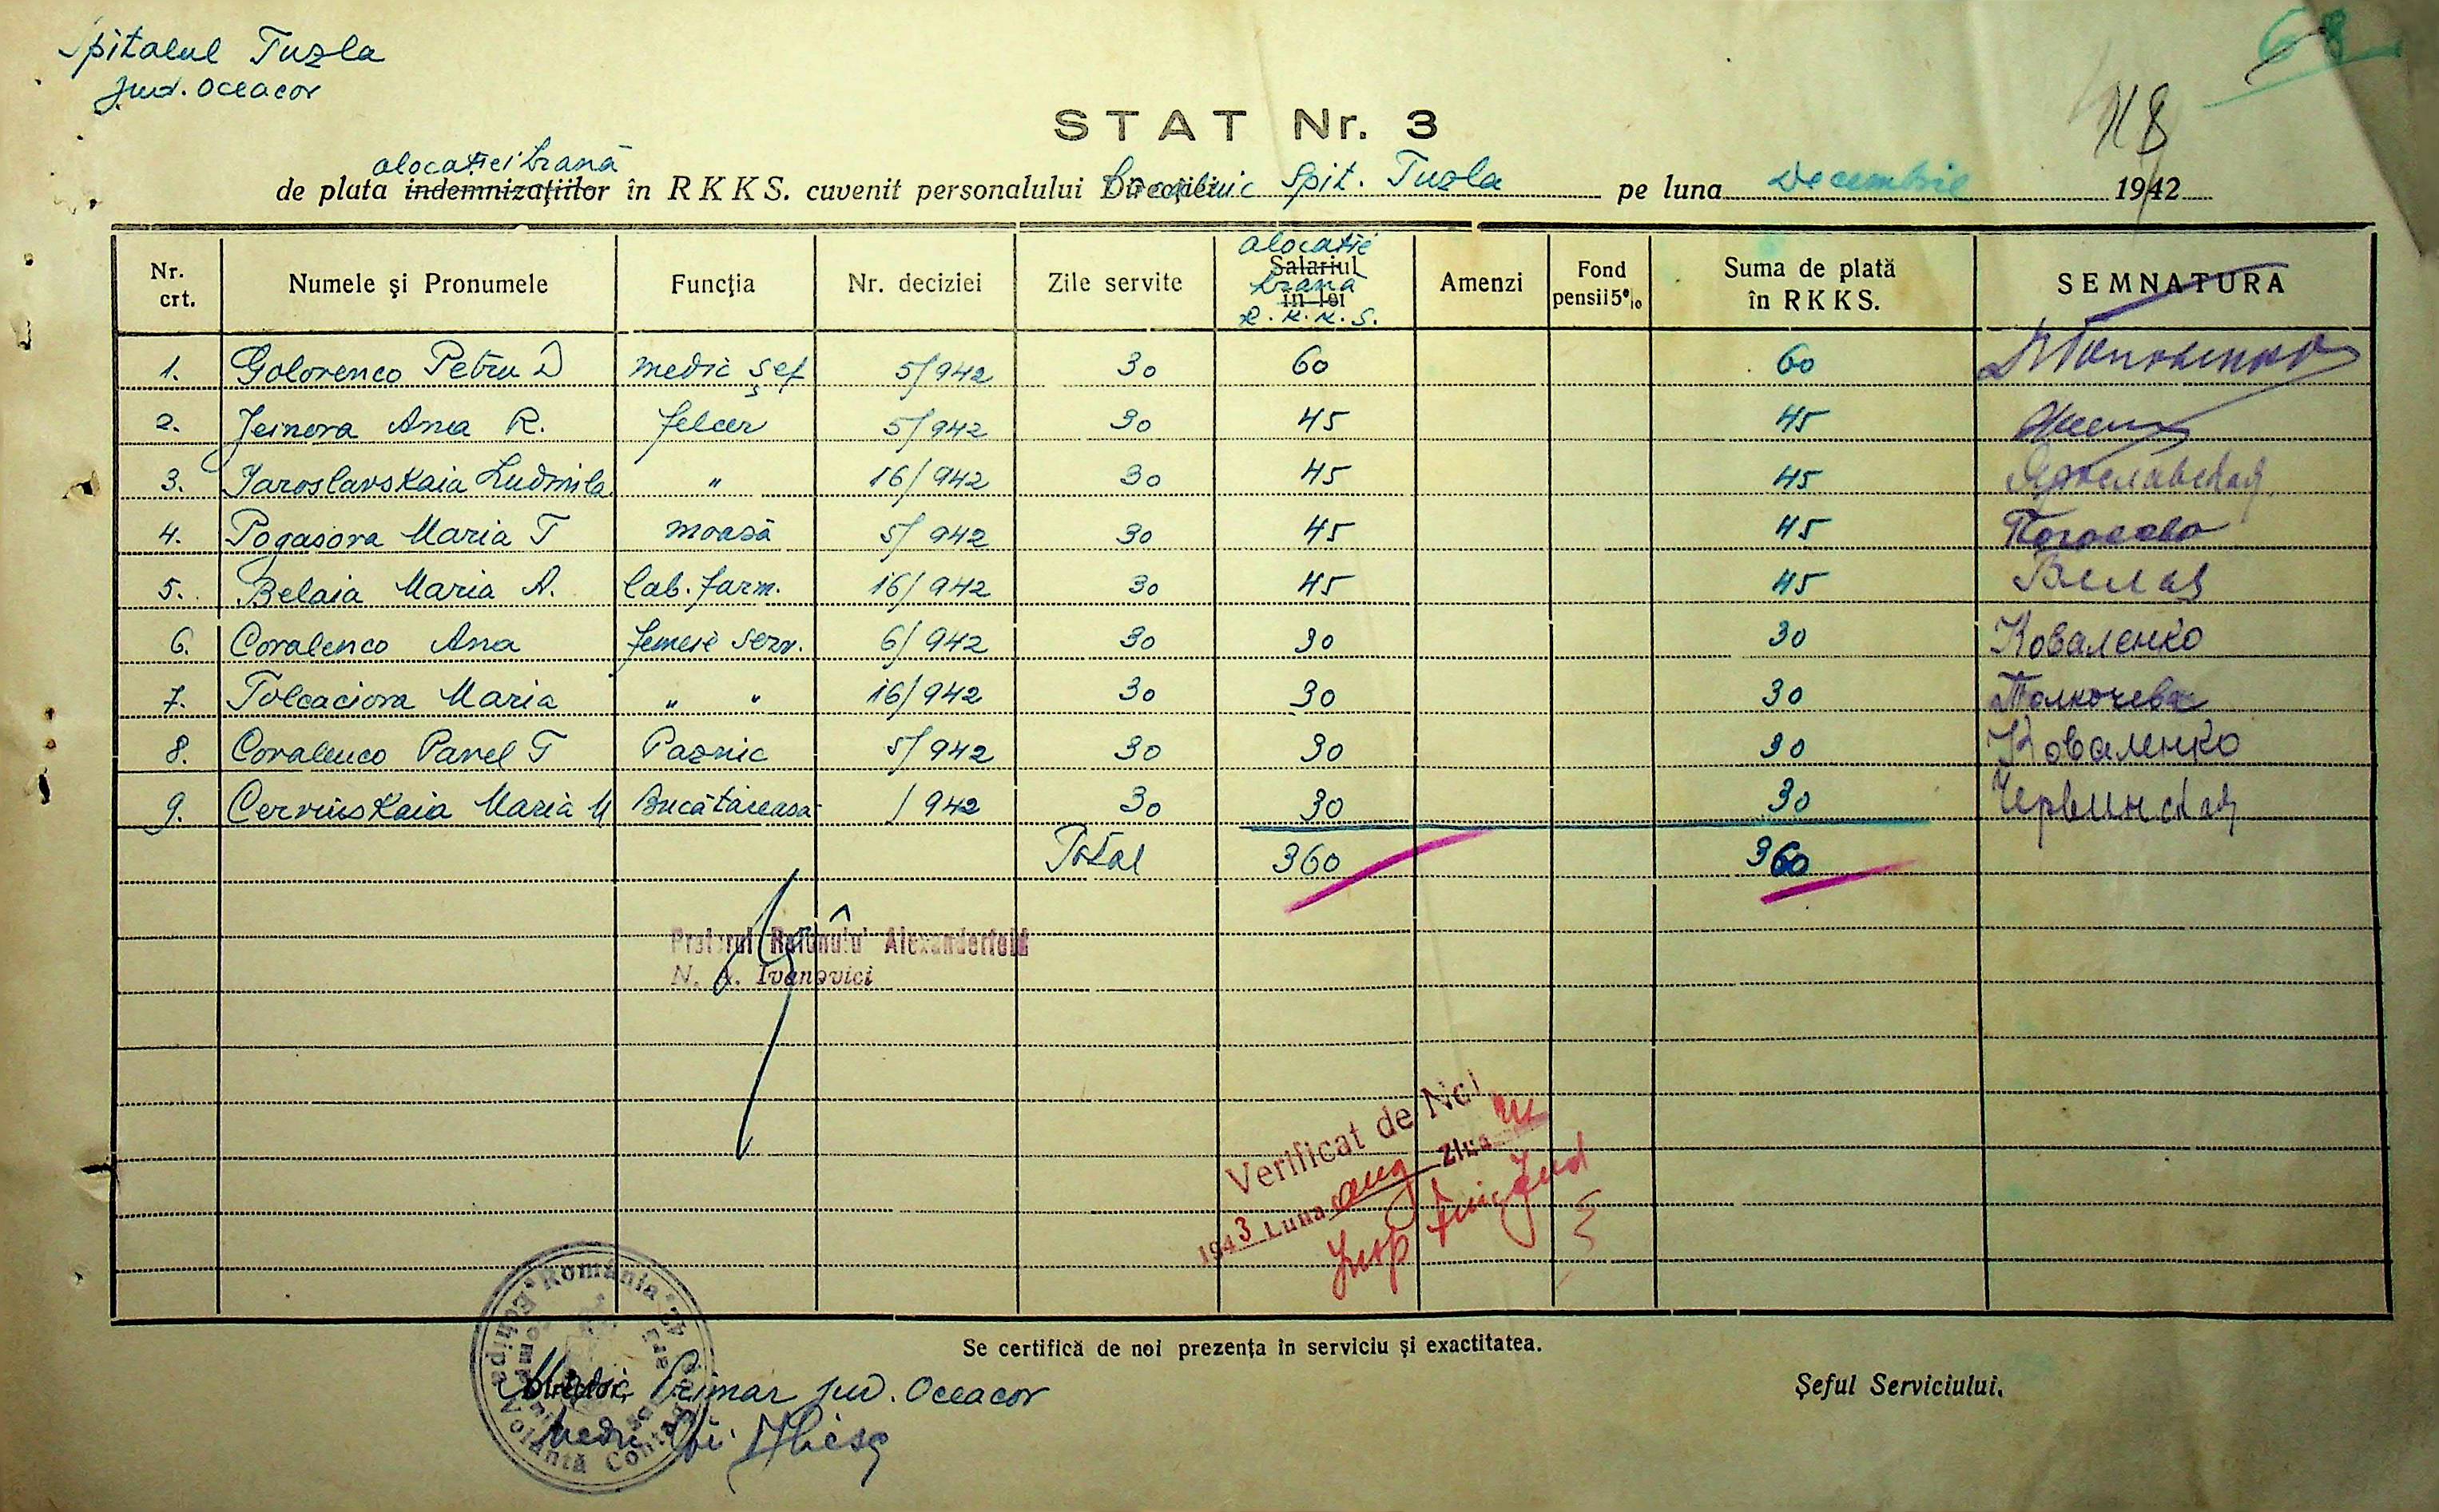 Spitalul Tuzla
Jud. Oceacov
68
118
STAT Nr. 3
alocației hrană
de plata indemnizațiilor în RKKS. cuvenit personalului Spit. Tuzla pe luna Decembrie 1942
Nr. crt. Numele și Pronumele Funcția Nr. deciziei Zile servite alocație Salariul hrană în lei R.K.K.S. Amenzi Fond pensii 5% Suma de plată în RKKS. SEMNATURA
1. Golovenco Petru D medic șef 5/942 30 60 60
2. Jeinova Ana R. felcer 5/942 30 45 45
3. Iaroslavskaia Ludmila " 16/942 30 45 45 Ярославская
4. Pogasova Maria T moașă 5/942 30 45 45 Погосова
5. Belaia Maria A. lab. farm. 16/942 30 45 45 Белая
6. Covalenco Ana femeie serv. 6/942 30 30 30 Коваленко
7. Tolcaciova Maria " " 16/942 30 30 30 Толкочева
8. Covalenco Pavel T Paznic 5/942 30 30 30 Коваленко
9. Cervinskaia Maria M Bucătăreasă /942 30 30 30 Червинская
Total 360 360
Pretorul Raionului Alexanderfeld
N. A. Ivanovici
Verificat de Noi
1943 Luna aug Ziua
Insp Jud
România
Echipa Volantă
Se certifică de noi prezența în serviciu și exactitatea.
Director, Medic Primar jud. Oceacov
Șeful Serviciului,